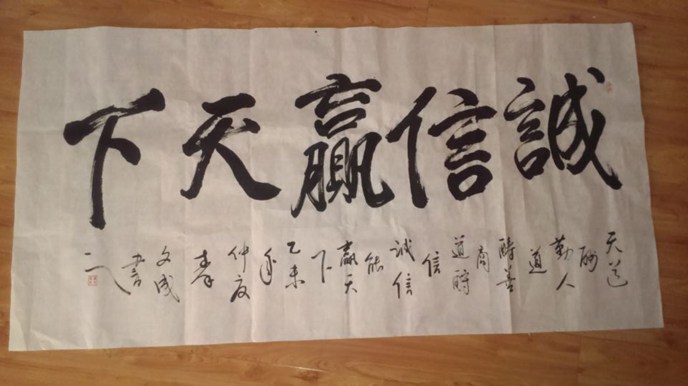 誠信贏天下
天道
酬
勤人
道
酬善
商
道酬
信
诚信
能
赢天
下
乙未
年
仲夏
文成
書